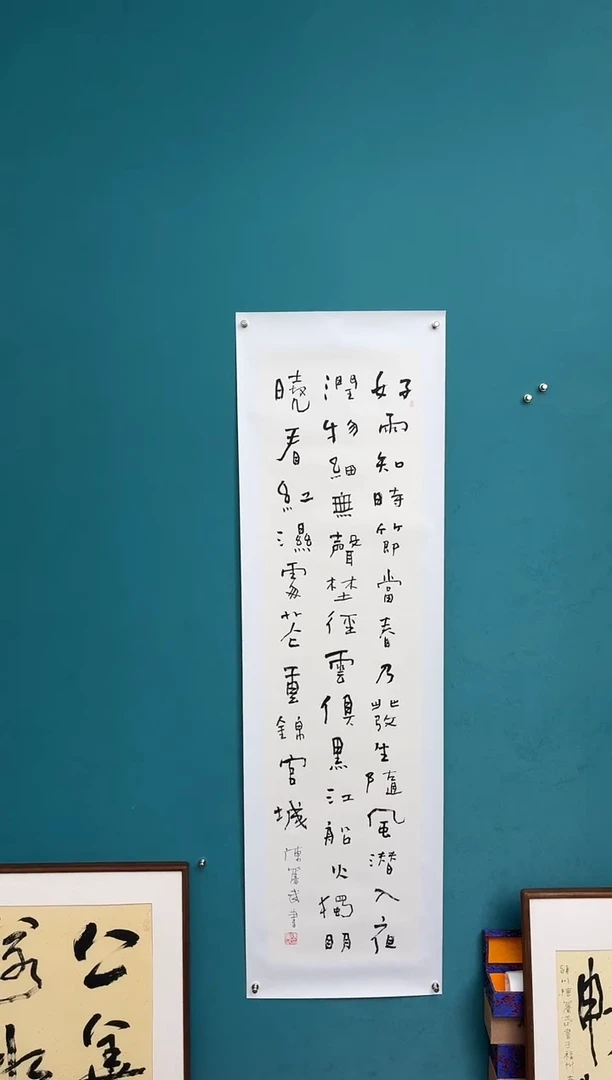 好雨知時節當春乃發生隨風潛入夜
潤物細無聲埜徑雲俱黑江船火獨明
曉看紅濕處花重錦官城
陳書
公